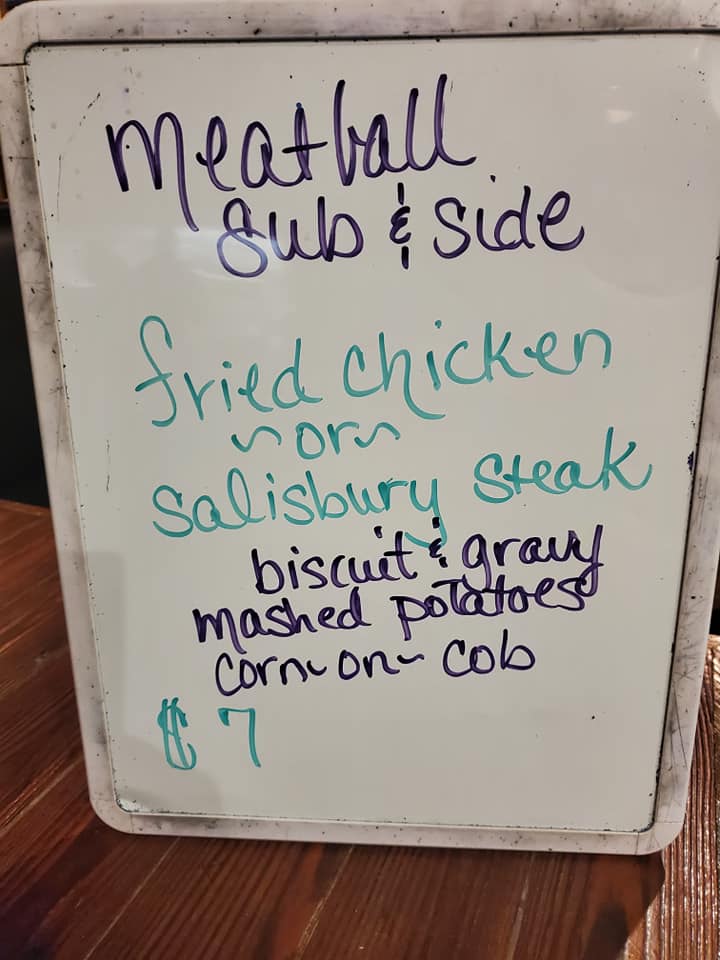 Meatball
Sub & Side
fried chicken
~or~
Salisbury Steak
biscuit & gravy
mashed potatoes
corn~on~cob
$7